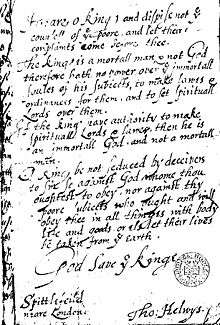 Heare, o King, and dispise not ye
counsell of ye poore, and let their
complaints come before thee.
The King is a mortall man, & not God
therefore hath no power over ye immortall
soules of his subiects, to make lawes &
ordinances for them, and to set spirituall
Lords over them.
If the King have authority to make
spirituall Lords & lawes, then he is
an immortall God, and not a mortall
man.
O King, be not seduced by deceivers
to sin so against God whome thou
oughtest to obey, nor against thy
poore subiects who ought and will
obey thee in all thinges with body
life and goods or els let their lives
be taken from ye earth.
God Save ye King
Spittlefeild
neare London.
Tho: Helwys.